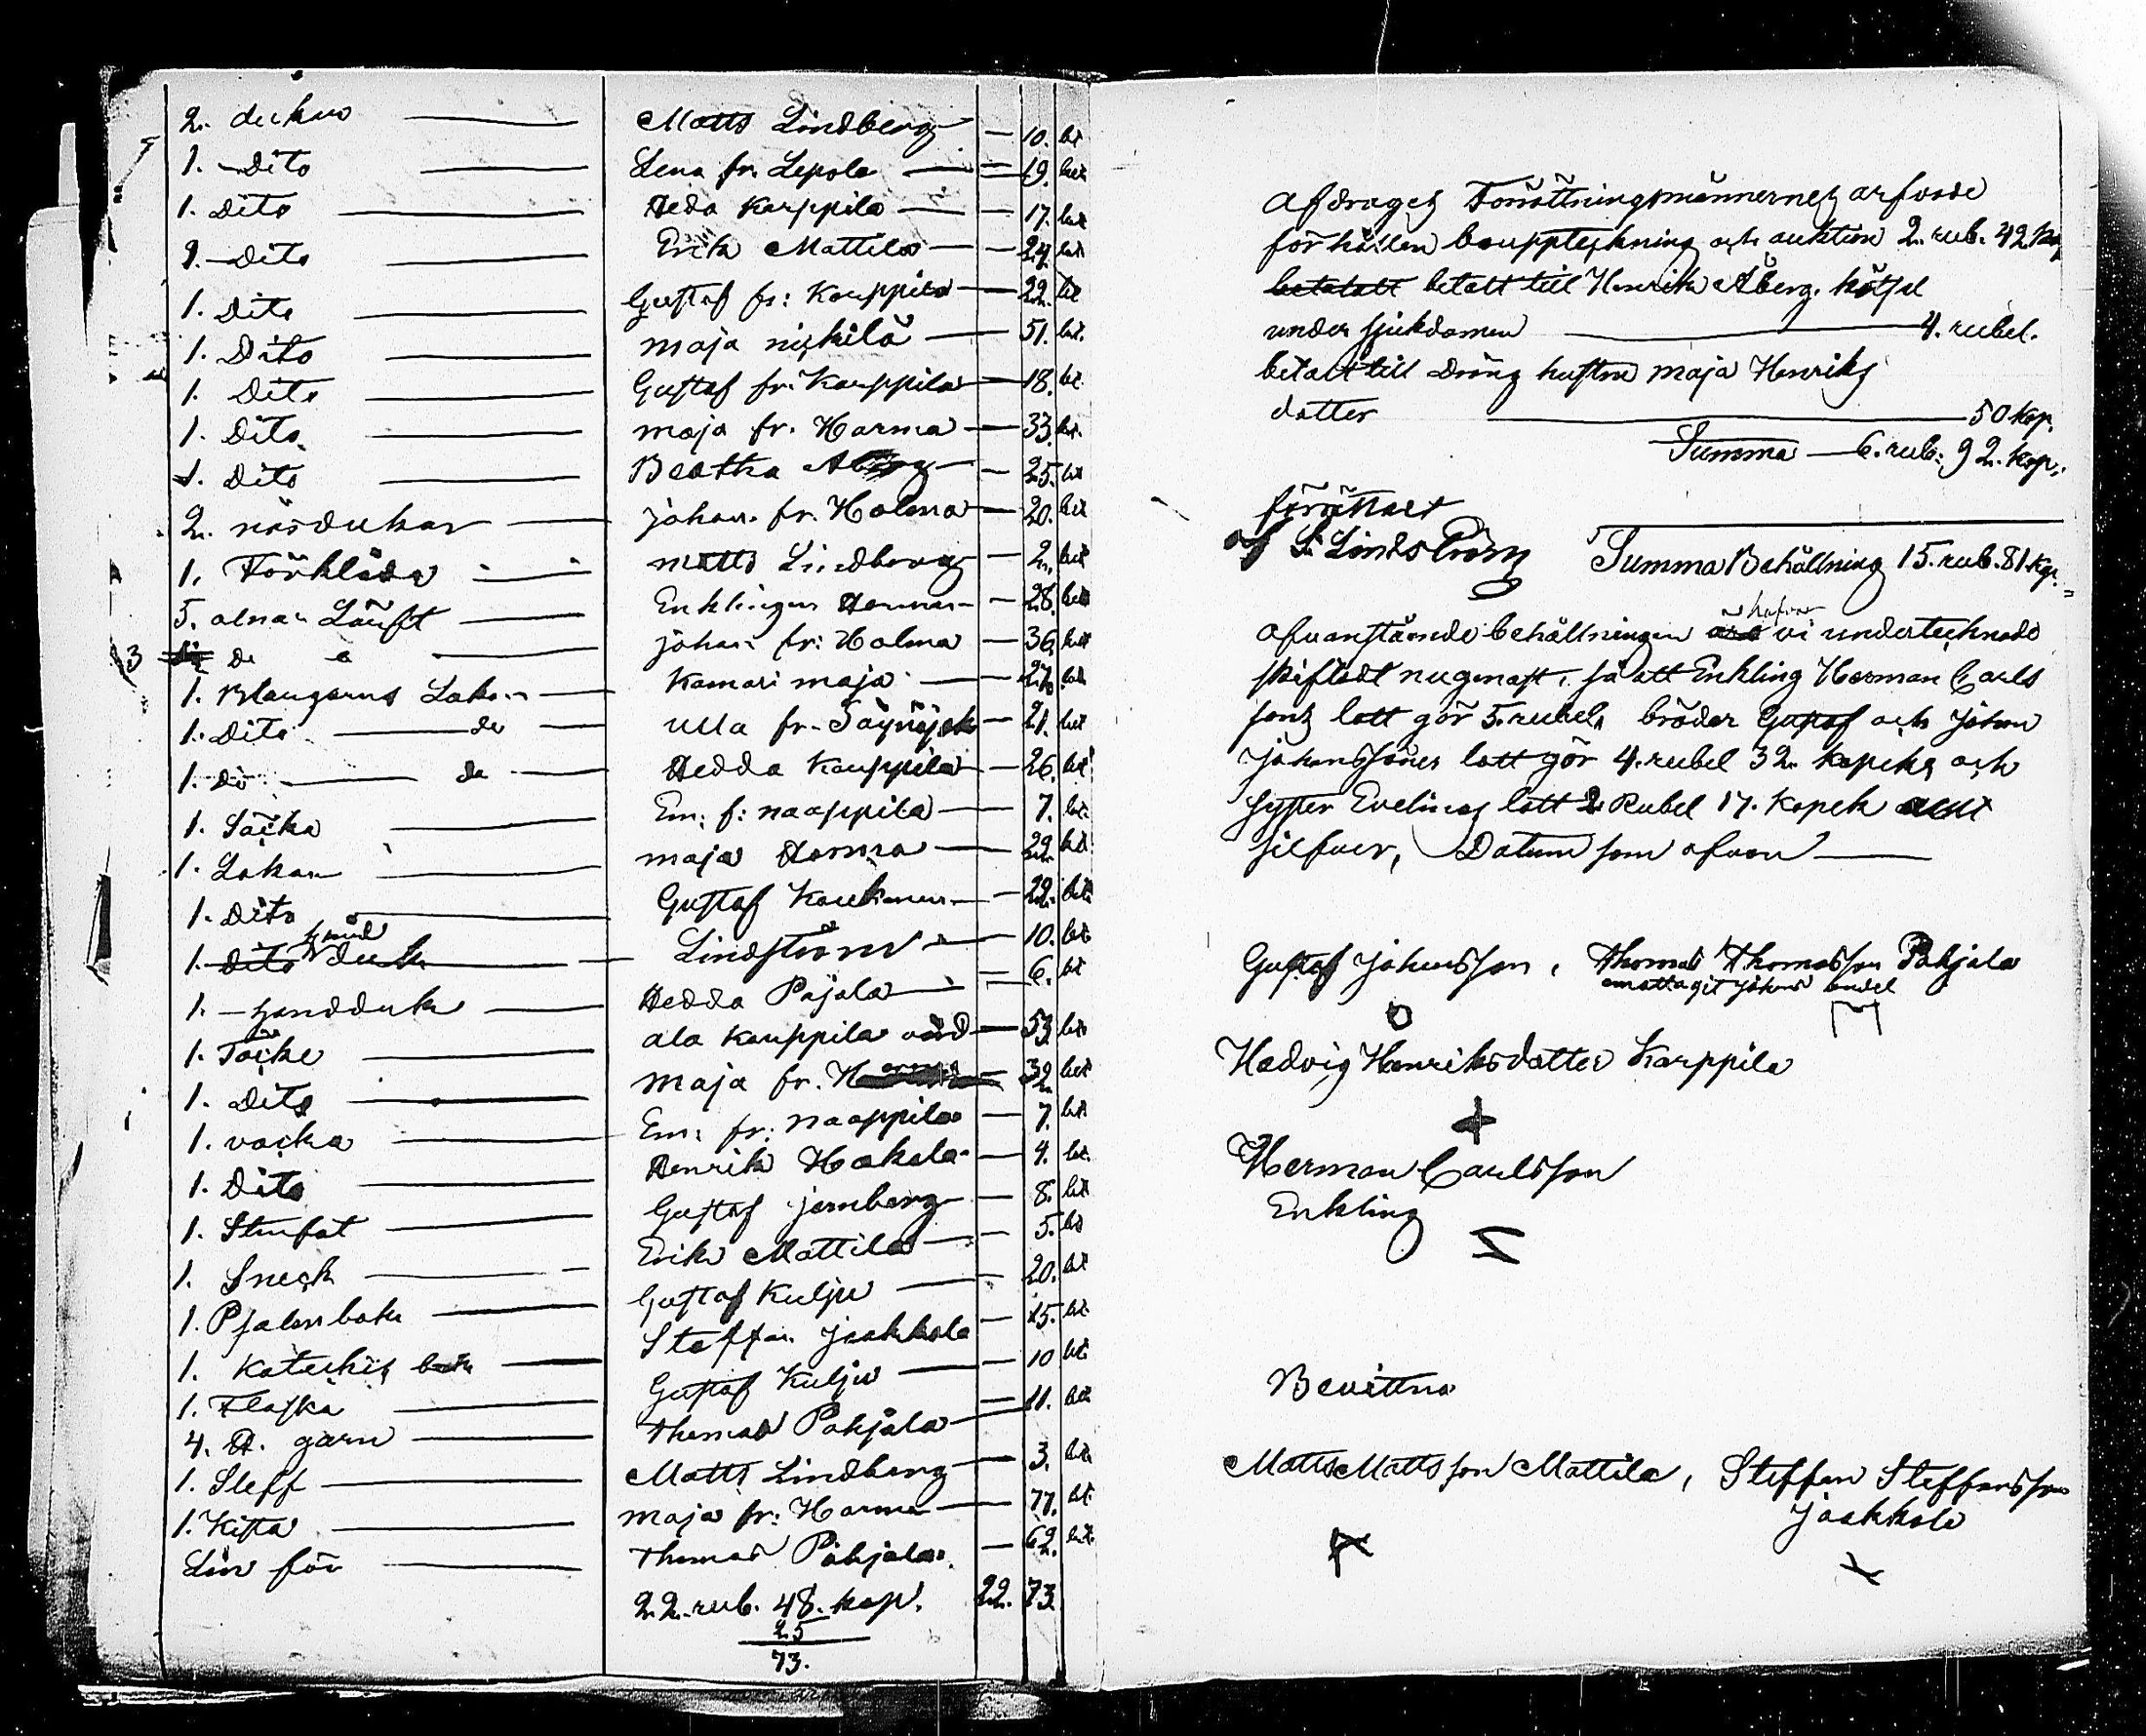 2. dukar — Matts Lindberg — 10. bet
1. Dito — Lena fr. Lepola — 19. bet
1. Dito — Heda Karppila — 17. bet
1. Dito — Erik Mattila — 24. bet
1. Dito — Gustaf fr: Karppila — 22. bet
1. Dito — maja nickilä — 51. bet.
1. Dito — Gustaf fr: Karppila — 18. bet
1. Dito — maja fr. Harma — 33. bet.
1. Dito — Beatha Åberg — 25. bet
2. näsdukar — johan. fr. Holma — 20. bet
1. Förkläde — matts Lindberg — 2. bet
5. alnar Läuft — Enklingen Herman — 28. bet
3 do — johan fr: Holma — 36. bet
1. Blaugarns Lakan — Kamari maja — 27. bet
1. Dito — do — Ulla fr. — 21. bet
1. Do — do — Hedda Kauppila — 26. bet
1. Säcka — Em: f: naappila — 7. bet.
1. Lakan — maja Harma — 22. bet
1. Dito — Gustaf — 22. bet.
1. Dito hand duk — Lindström — 10. bet
1. — handduk — Hedda Pajala — 6. bet
1. Täcke — ala Kauppila värd — 53. bet
1. Dito — maja fr. Harma — 32. bet
1. vacka — Em: fr: naappila — 7. bet
1. Dito — Henrik Hakala — 4. bet.
1. Stenfat — Gustaf jernberg — 8. bet
1. Sneck — Erik Mattila — 5. bet
1. Psalmbok — Gustaf Kulju — 20. bet
1. Katechis bok — Steffan Jaakkola — 15. bet.
1. Flaska — Gustaf Kulju — 10 bet.
4. garn — Thomas Pohjala — 11. bet
1. Sleff — Matts Lindberg — 3. bet
1. Kista — maja fr: Harma — 77. bet
Lin för — Thomas Pohjala. — 62. bet.
22. rub. 48. kop. 22. 73.
25
73.
Afdrages Förrättningsmännernes arfvode
för hållen bouppteckning och auktion 2. rub. 42 kop
betalatt betalt till Henrik Åberg. kötsel
under sjukdomen — 4. rubel.
betalt till dräng hustru maja Henriks
dotter — 50 kop.
Summa — 6. rub: 92. kop.
förrättat
af S. Lindström
Summa Behållning 15. rub. 81. kop.
Ofvanstående behållningen hafva vi undertecknade
skiftadt , så att Enkling Herman Carls
sons lott gör 5. rubel, bröder Gustaf och Johan
Johanssöner lott gör 4. rubel 32. kopek och
syster Evelinas lott 2 Rubel 17. Kopek allt
silfver, Datum som ofvan —
Gustaf Johansson, Thomas Thomasson Pohjala
emottagit Johans andel
Hedvig Henriksdotter Karppila
Herman Carlsson
Enkling
Bevittna
Matts Mattsson Mattila, Steffan Steffansson
Jaakkola